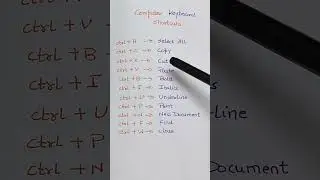 Computer Keyboard
Shortcuts
ctrl + A → Select All
ctrl + C → Copy
ctrl + X → Cut
ctrl + V → Paste
ctrl + B → Bold
ctrl + I → Italic
ctrl + U → Underline
ctrl + P → Print
ctrl + N → New Document
ctrl + F → Find
ctrl + W → Close
ctrl + V
ctrl + B
ctrl + I
ctrl + U
ctrl + P
ctrl
Document